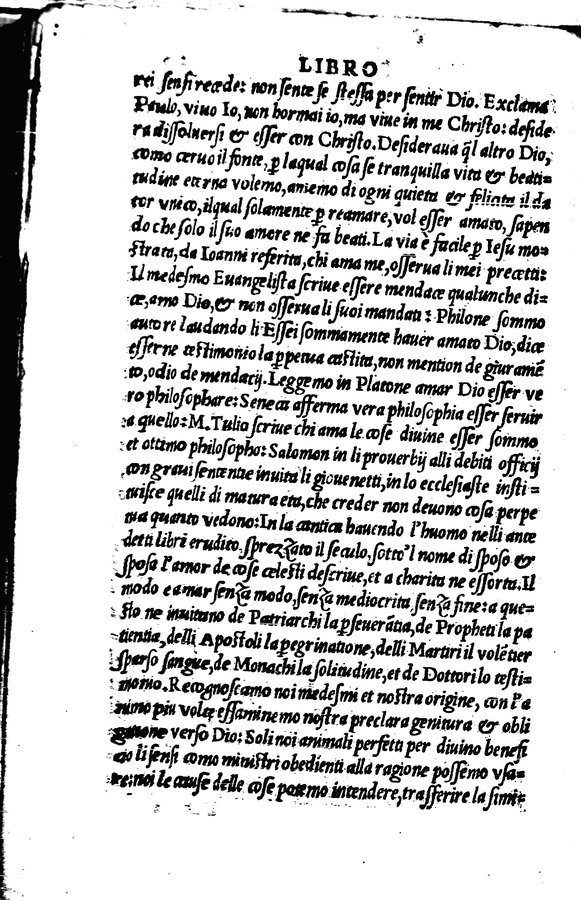 LIBRO
rei sensi recede: non sente se stessa per sentir Dio. Exclama
Paulo, viuo Io, non hormai io, ma viue in me Christo: deside
ra dissoluersi & esser con Christo. Desideraua q̃l altro Dio,
como ceruo il fonte, ꝑ laqual cosa se tranquilla vita & beati-
tudine eterna volemo, amemo di ogni quieta & felicita il da
tor vnico, ilqual solamente ꝑ reamare, vol esser amato, sapen
do che solo il suo amore ne fa beati. La via è facile ꝑ Iesu mo-
strata, da Ioanni referita, chi ama me, osserua li mei precetti:
Il medesmo Euangelista scriue essere mendace qualunche di-
ce, amo Dio, & non osserua li suoi mandati: Philone sommo
autore laudando li Essei sommamente hauer amato Dio, dice
esserne testimonio la ꝑpetua castita, non mention de giuramē
to, odio de mendacij. Leggemo in Platone amar Dio esser ve
ro philosophare: Seneca afferma vera philosophia esser seruir
a quello: M. Tulio scriue chi ama le cose diuine esser sommo
et ottimo philosopho: Salomon in li prouerbij alli debiti officij
con graui sententie inuita li giouenetti, in lo ecclesiaste insti-
tuisce quelli di matura eta, che creder non deuono cosa perpe
tua quanto vedono: In la cantica hauendo l'huomo nelli ante
detti libri erudito, sprezzato il seculo, sotto'l nome di sposo &
sposa l'amor de cose celesti descriue, et a charita ne essorta. Il
modo e amar senza modo, senza mediocrita, senza fine: a que-
sto ne inuitano de Patriarchi la ꝑseuerātia, de Propheti la pa
tientia, delli Apostoli la ꝑegrinatione, delli Martiri il volētier
sparso sangue, de Monachi la solitudine, et de Dottori lo testi-
monio. Recognoscamo noi medesmi et nostra origine, con l'a
nimo piu volte essaminemo nostra preclara genitura & obli
gatione verso Dio: Soli noi animali perfetti per diuino benefi
cio li sensi como ministri obedienti alla ragione possemo vsa-
re: noi le cause delle cose potemo intendere, trasferire la simi-